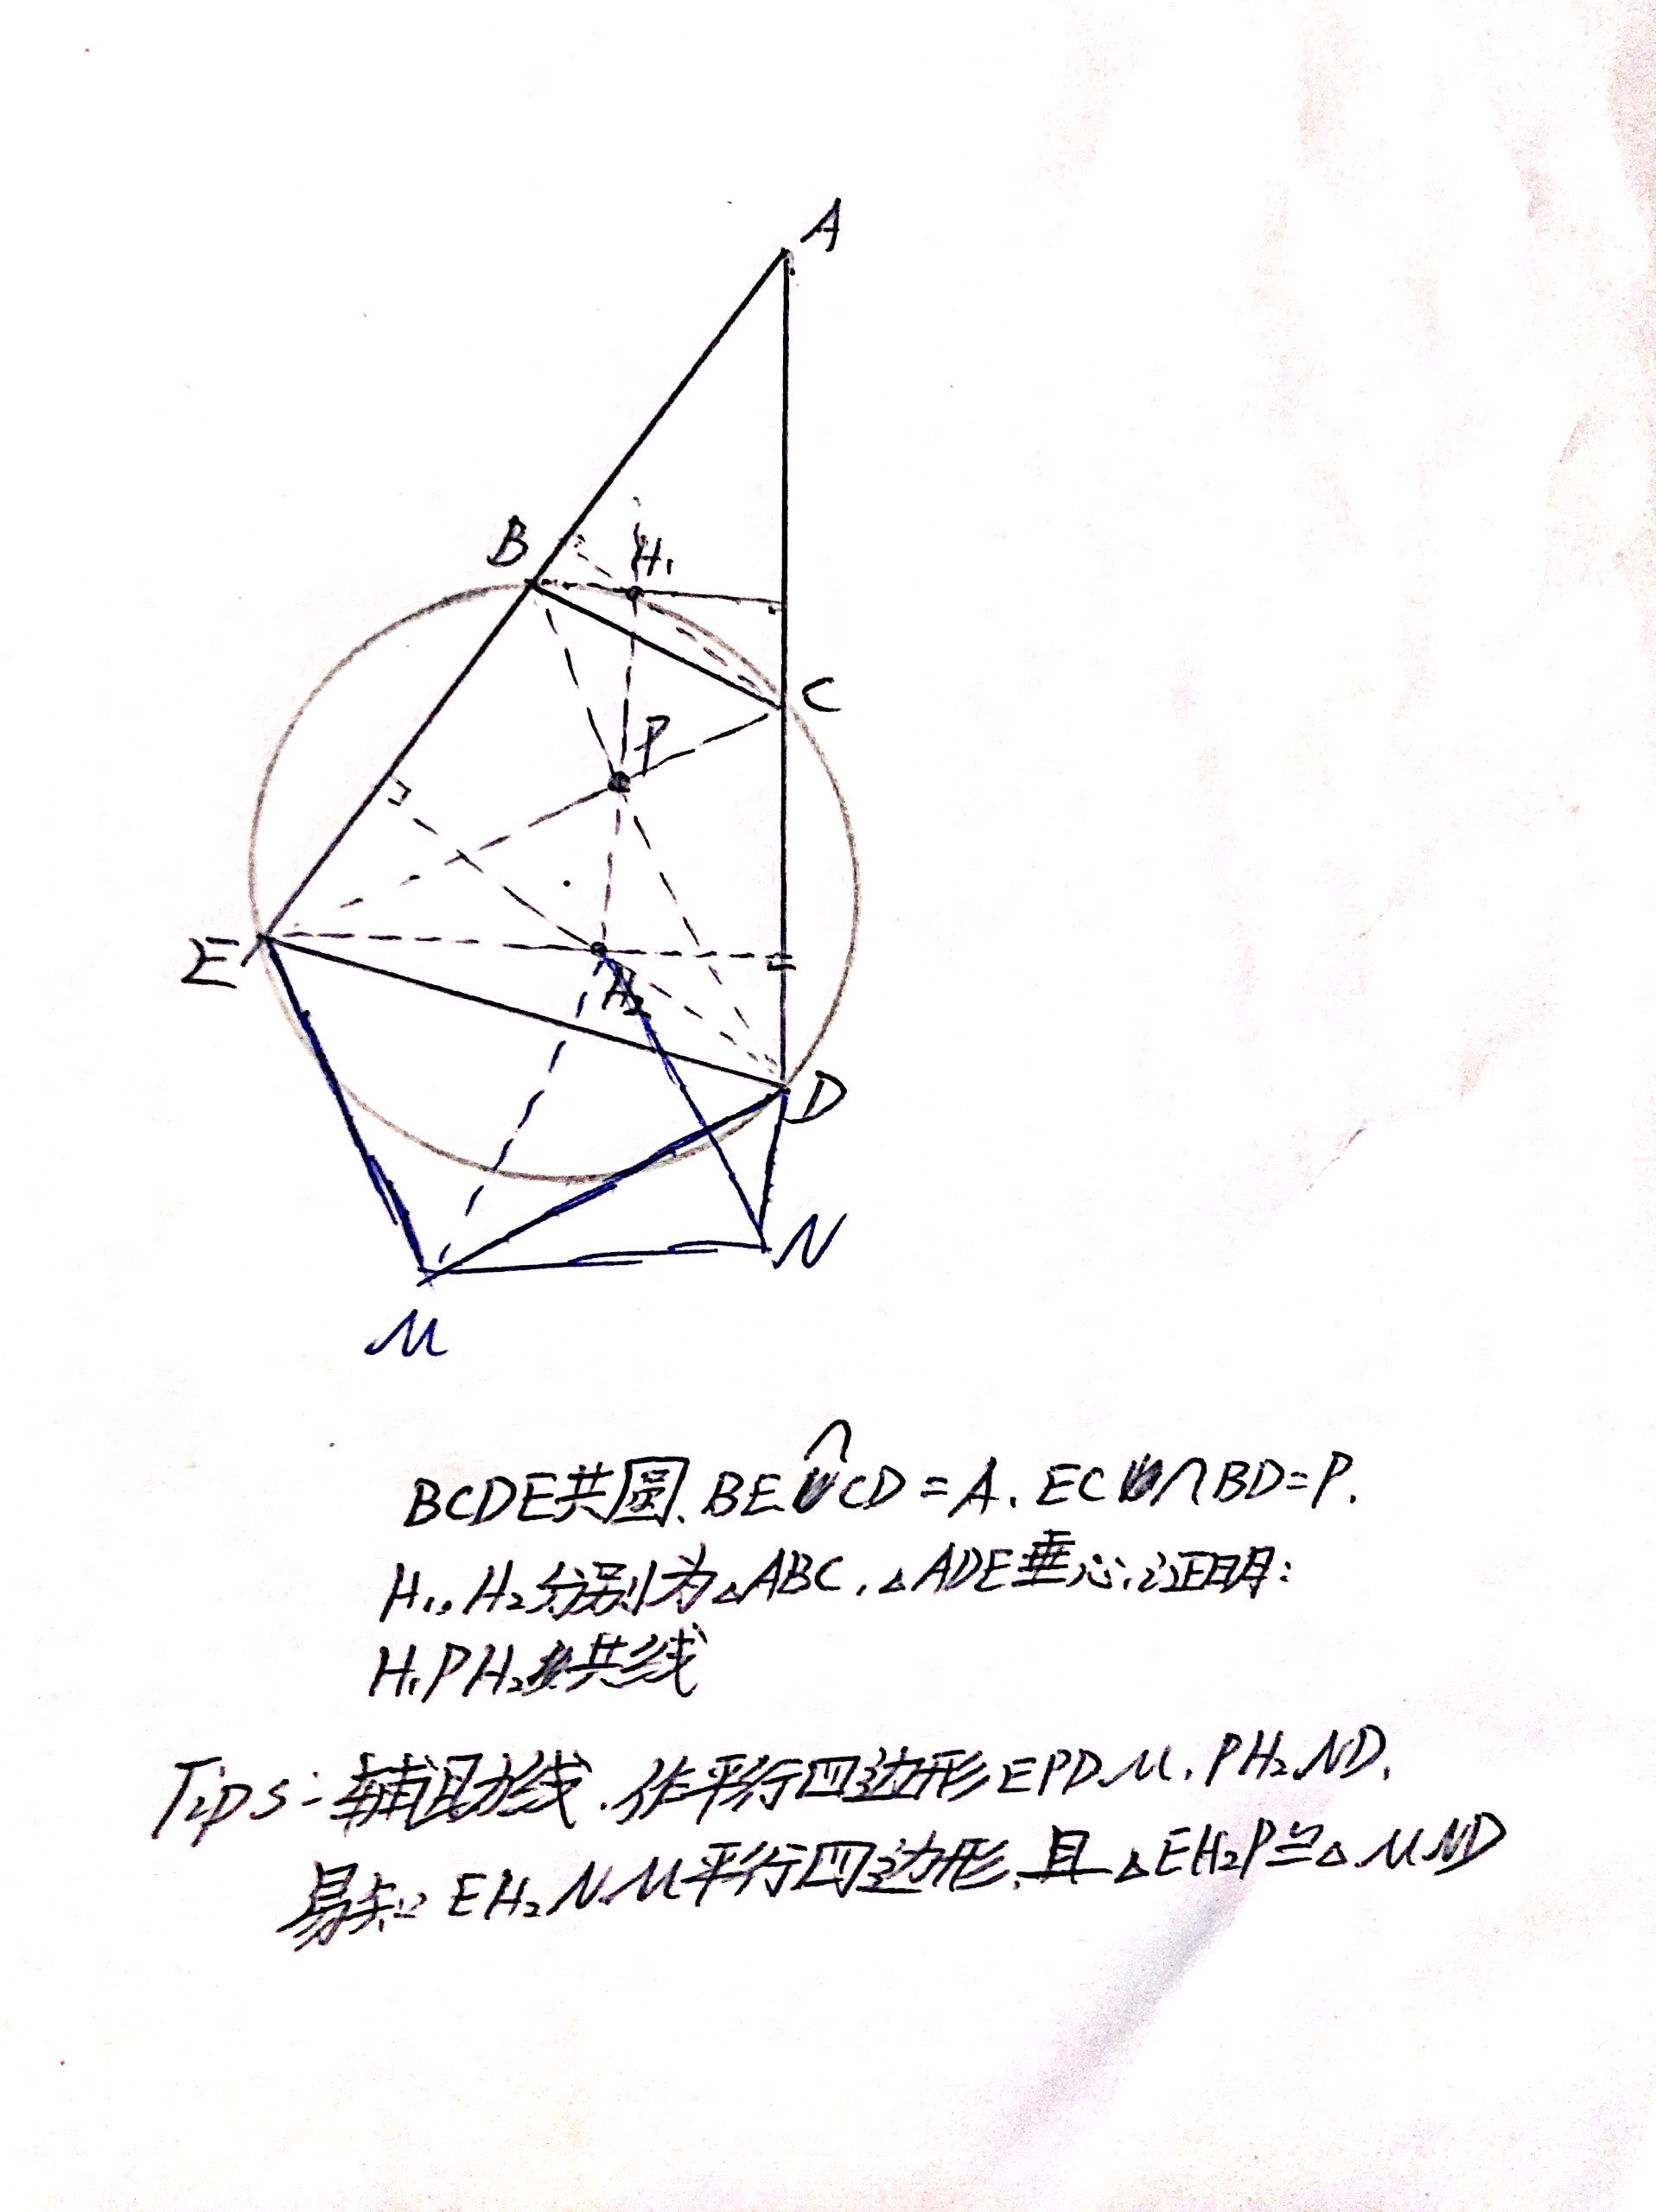 A
B
H₁
C
P
E
H₂
D
N
M
BCDE共圆.BE∩CD=A.EC∩BD=P.
H₁,H₂分别为△ABC,△ADE垂心,证明:
H₁PH₂共线
Tips:辅助线.作平行四边形EPDM,PH₂ND.
易知 EH₂NM平行四边形,且△EH₂P≌△MND